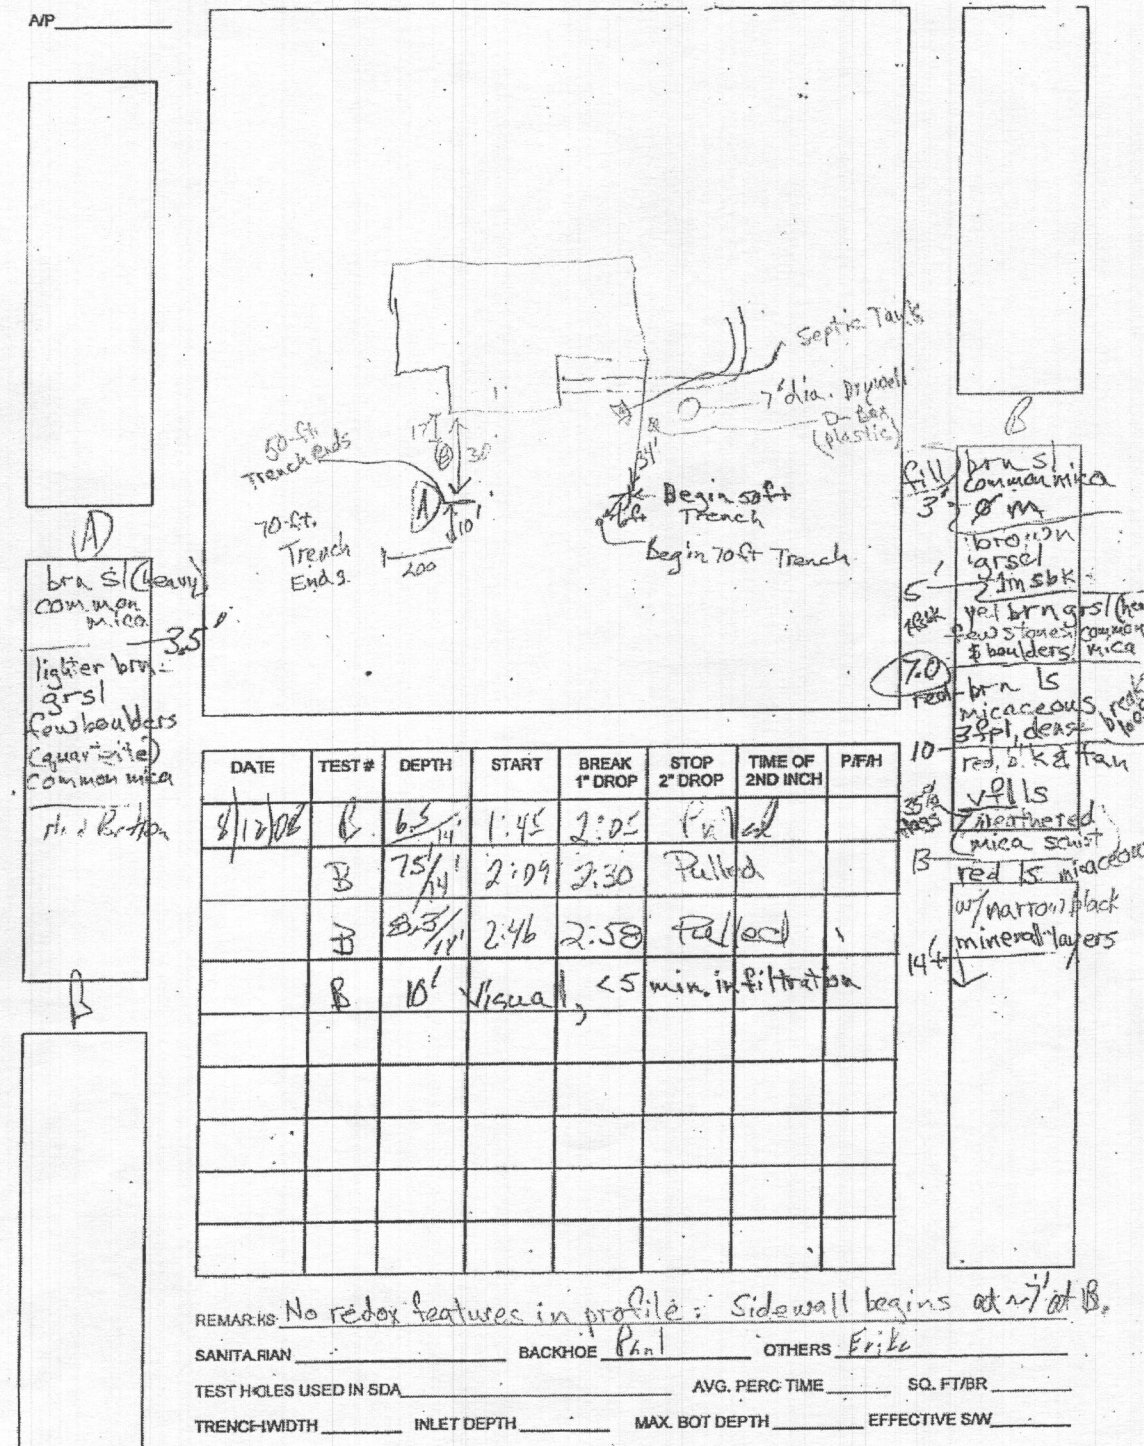 A/P
Septic Tank
7' dia. Drywell
D-Box
(plastic)
50-ft.
Trench Ends
17'
30'
34'
A
10'
Begin 50ft
Trench
Begin 70ft Trench
70-ft.
Trench
Ends
200
A
brn sl (heavy)
common
mica
3.5'
lighter brn
grsl
few boulders
(quartzite)
common mica
B
B
fill
brn sl
common mica
3'
Ø m
brown
grscl
5'
1msbk
yel brn grsl (heavy)
few stones common
& boulders mica
7.0
red-brn ls
micaceous
3fpl, dense
10
red, blk & tan
vfls
35%
weathered
mica schist
13
red ls micaceous
w/ narrow black
mineral layers
14'+
DATE TEST # DEPTH START BREAK 1" DROP STOP 2" DROP TIME OF 2ND INCH P/F/H
8/12/08 B 6.5/14' 1:45 2:05 Pulled
B 7.5/14' 2:09 2:30 Pulled
B 8.5/14' 2:46 2:58 Pulled
B 10' Visual, <5 min. infiltration
REMARKS No redox features in profile: Sidewall begins at ~7' at B.
SANITARIAN BACKHOE Phil OTHERS
TEST HOLES USED IN SDA AVG. PERC TIME SQ. FT/BR
TRENCH WIDTH INLET DEPTH MAX. BOT DEPTH EFFECTIVE S/W